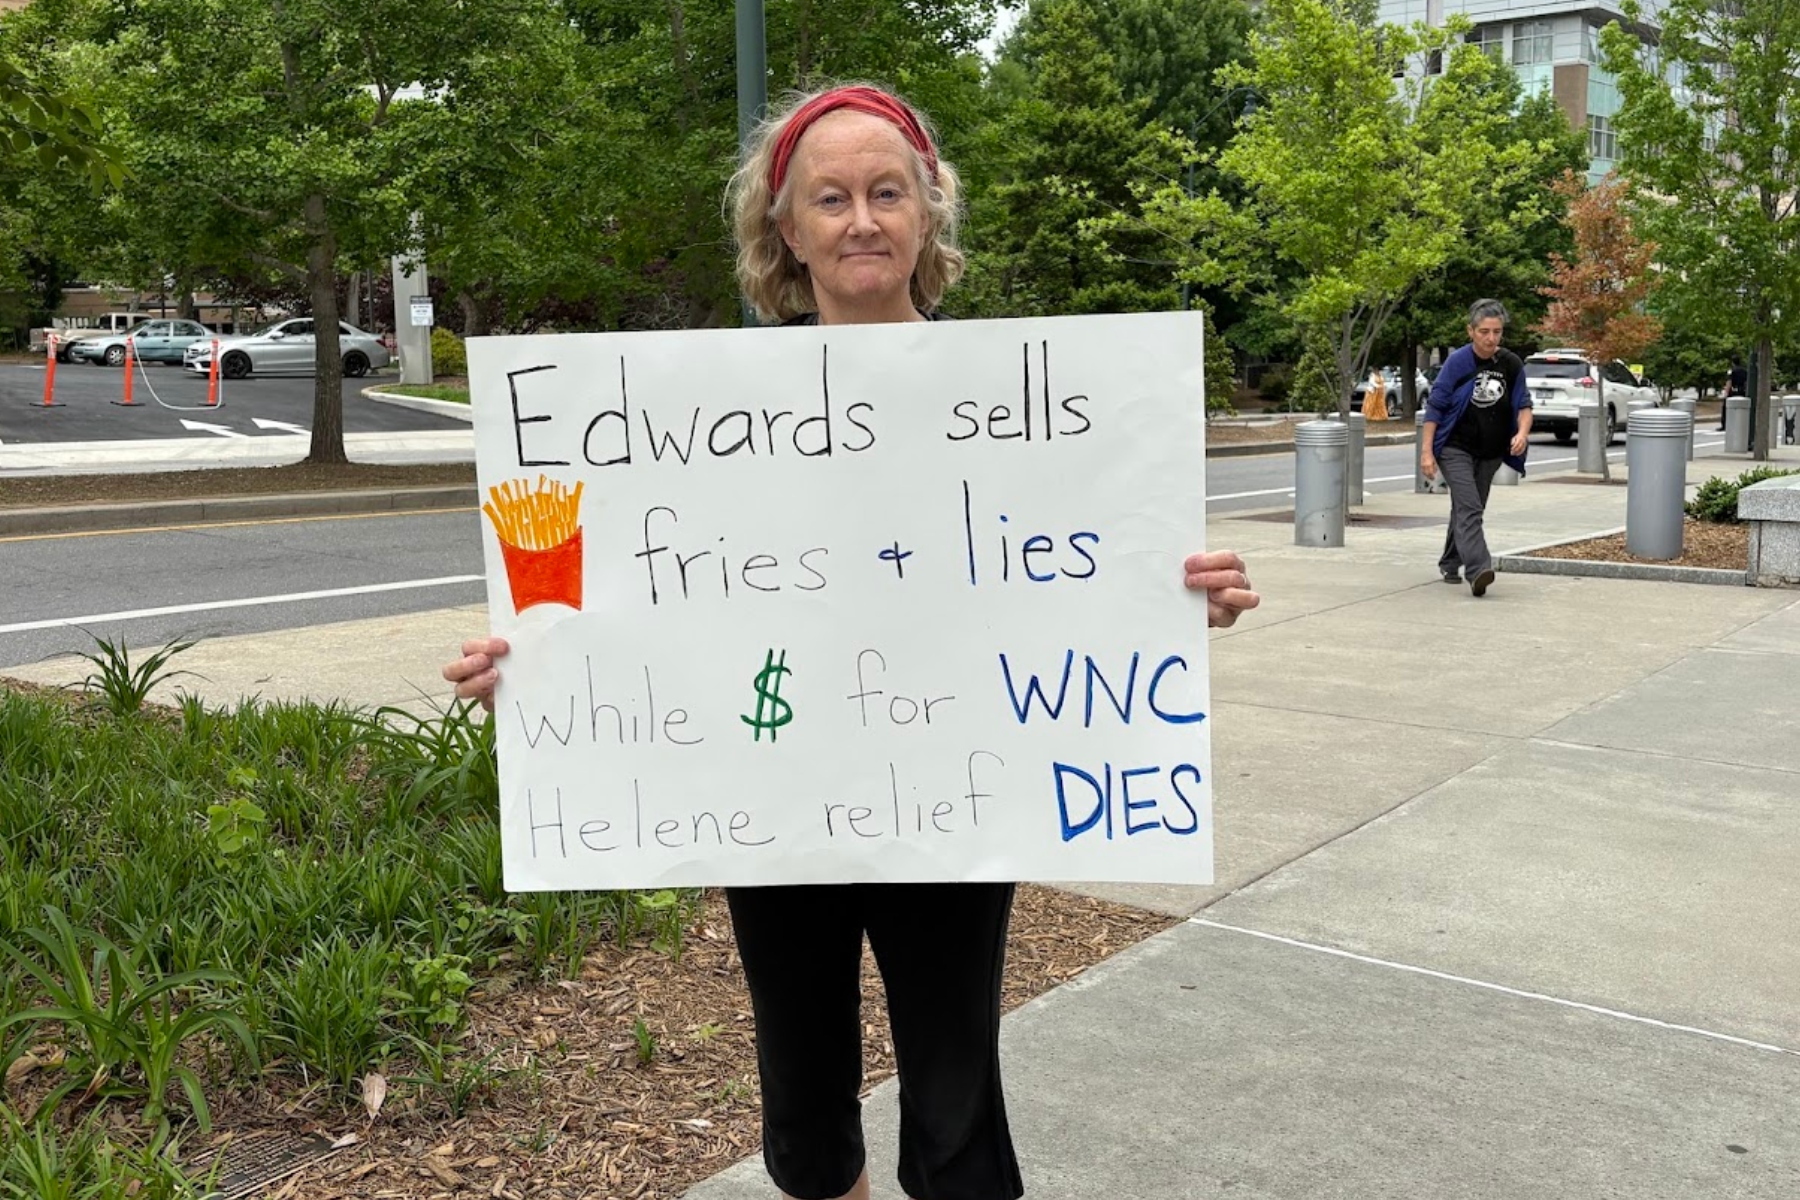 Edwards sells
fries + lies
while $ for WNC
Helene relief DIES